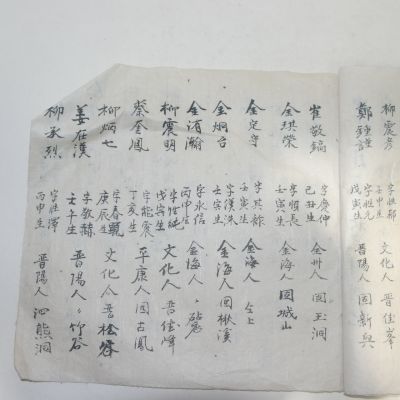 柳震彦 字性郁 壬申生 文化人 晋佳峯
鄭鍾謹 字性元 戊寅生 晋陽人 固新興
崔敬鎬 字慶仲 己丑生 全州人 固玉洞
金琪榮 字順長 壬寅生 金海人 固城山
金定守 字其祿 壬寅生 金海人 仝上
金炯台 字漢洙 壬寅生 金海人 固楸溪
金洧瀚 字永信 丙申生 金海人
柳震明 字性純 戊寅生 文化人 晋佳峰
蔡奎鳳 字能震 丁亥生 平康人 固古鳳
柳炳七 字春 庚辰生 文化人 晋桧
姜在漢 字敬赫 壬午生 晋陽人 竹谷
柳承烈 字性澤 丙申生 晋陽人 泗熊洞